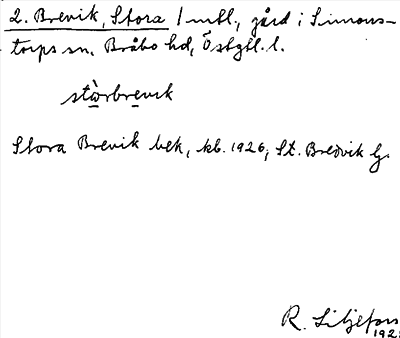 2. Brevik, Stora 1 mtl., gård i Simons-
torps sn. Bråbo hd, Östgtl. l.
stòrbrevik
Stora Brevik bek, kb. 1926, St. Bredvik G.
R. Liljefors